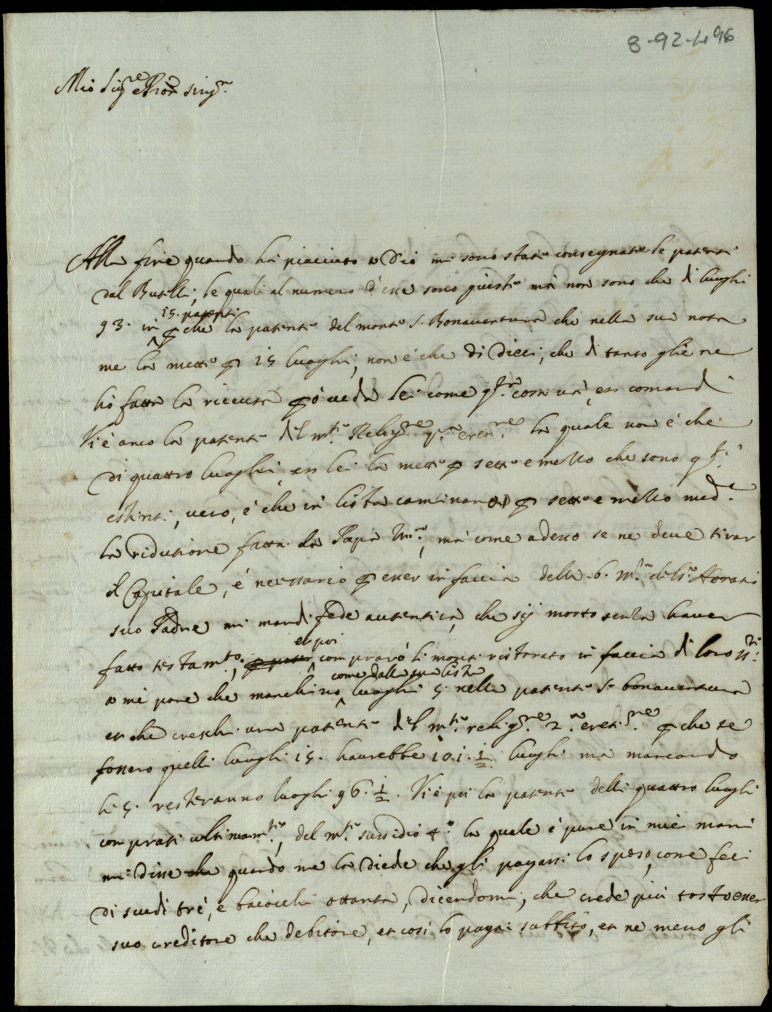 8-92-496
Mio Sig.re e Pron sing.r
Alla fine quando hà piaciuto a Dio mi sono state consegnate le patenti
dal Buselli, le quali al numero d'esse sono giuste mà non sono che di luoghi
93. in 15. patenti p che la patente del monte S. Bonaventura che nella sua nota
me la mette p 15 luoghi, non è che di Dieci, che di tanto gliè ne
hò fatta la riceuta p ò veda lei come q.ta cosa và, et comandi
Vi è anco la patente del m.te Relig.ne p.a erett.ne la quale non è che
di quattro luoghi, et lei la mette p sette e mezzo che sono q.ti
estinti, vero, è che in lista caminano p sette e mezzo med.e
la riduzione fatta da Papa Inn.o, mà come adesso se ne deve tirar
il Capitale, è necessario p esser in faccia della b. m. del S. Horatio
suo Padre mi mandi fede autentica, che sij morto senza haver
fatto testam.to, et poi comprarò li monti ristorato in faccia di loro SS.ri
a mè pare che manchino, come dalla sua lista luoghi 5. nella patente S. bonaventura
et che creschi una patente del m.te relig.ne 2.a erett.ne p che se
fossero quelli luoghi 15. haurebbe 101. 1/2 luoghi mà mancando
li 5. resteranno luoghi 96. 1/2. Vi è poi la patente delli quattro luoghi
comprati ultimam.te, del m.te sussidio 4.o la quale è pure in mie mani
mi disse che quando me la diede che gli pagassi la spesa, come feci
di scudi trè, e baiocchi ottanta, dicendomi, che crede più tosto esser
suo creditore che debitore, et così lo pagai subbito, et ne meno gli